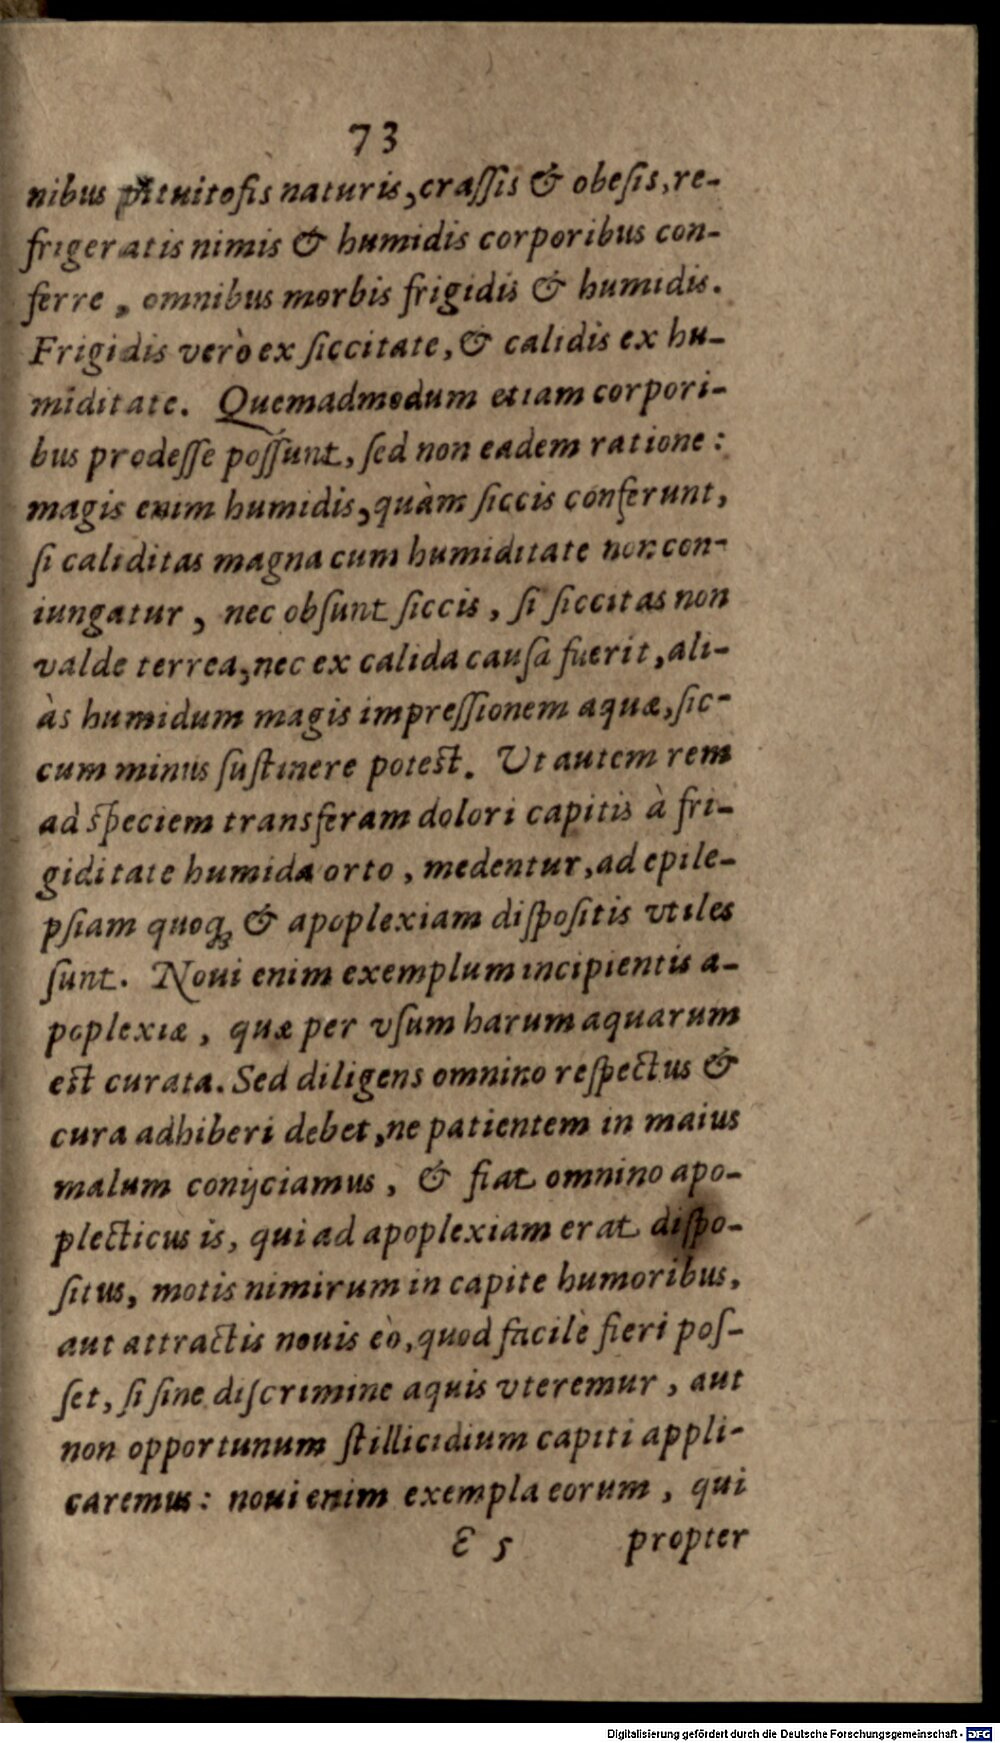 73
nibus pituitoſis naturis, craſſis & obeſis, re-
frigeratis nimis & humidis corporibus con-
ferre, omnibus morbis frigidis & humidis.
Frigidis verò ex ſiccitate, & calidis ex hu-
miditate. Quemadmodum etiam corpori-
bus prodeſſe poſſunt, ſed non eadem ratione:
magis enim humidis, quàm ſiccis conferunt,
ſi caliditas magna cum humiditate non con-
iungatur, nec obſunt ſiccis, ſi ſiccitas non
valde terrea, nec ex calida cauſa fuerit, ali-
às humidum magis impreſſionem aquæ, ſic-
cum minus ſuſtinere poteſt. Ut autem rem
ad ſpeciem transferam dolori capitis à fri-
giditate humida orto, medentur, ad epile-
pſiam quoq; & apoplexiam diſpoſitis vtiles
ſunt. Noui enim exemplum incipientis a-
poplexiæ, quæ per vſum harum aquarum
eſt curata. Sed diligens omnino reſpectus &
cura adhiberi debet, ne patientem in maius
malum conijciamus, & fiat omnino apo-
plecticus is, qui ad apoplexiam erat diſpo-
ſitus, motis nimirum in capite humoribus,
aut attractis nouis eò, quod facilè fieri poſ-
ſet, ſi ſine diſcrimine aquis vteremur, aut
non opportunum ſtillicidium capiti appli-
caremus: noui enim exempla eorum, qui
E 5 propter
Digitalisierung gefördert durch die Deutsche Forschungsgemeinschaft - DFG